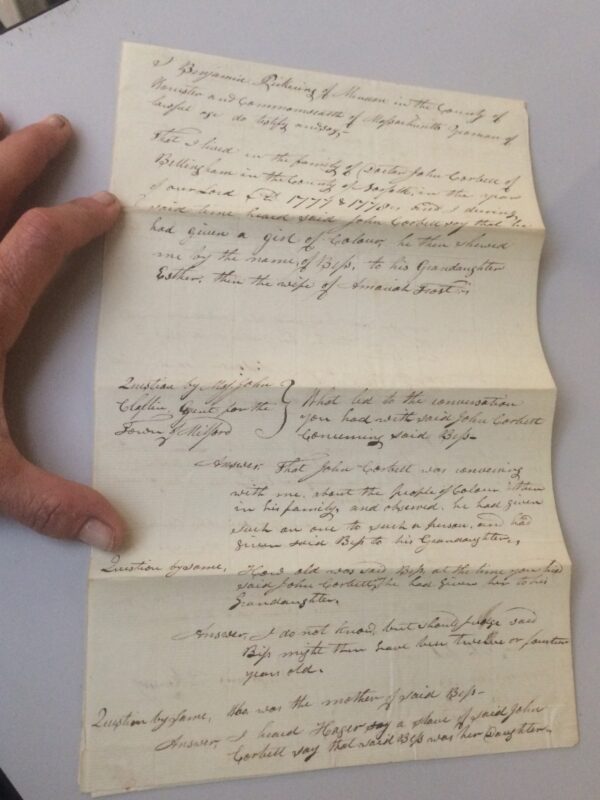 I Benjamin Pickering of Mendon in the County of
Worcester and Commonwealth of Massachusetts Yeoman of
lawful age do testify and say,-
That I lived in the family of Doctor John Corbett of
Bellingham in the County of Suffolk, in the years
of our Lord AD 1777 & 1778. and I during
said time heard said John Corbett say that he
had given a girl of Colour, he then shewed
me by the name, of Bess, to his Grandaughter
Esther, then the wife of Amariah Frost
Question by John
Claflin, agent for the
Town of Milford
What led to the conversation
you had with said John Corbett
Concerning said Bess-
Answer. That John Corbett was conversing
with me, about the people of Colour then
in his family, and observed, he had given
such an one to such a person, and had
given said Bess to his Grandaughter.
Question by same, How old was said Bess at the time you
said John Corbett he had given her to his
Grandaughter.
Answer. I do not know, but should judge said
Bess might then have been twelve or fourteen
years old.
Question by same, Who was the mother of said Bess-
Answer. I heard Hager say a slave of said John
Corbett say that said Bess was her Daughter.